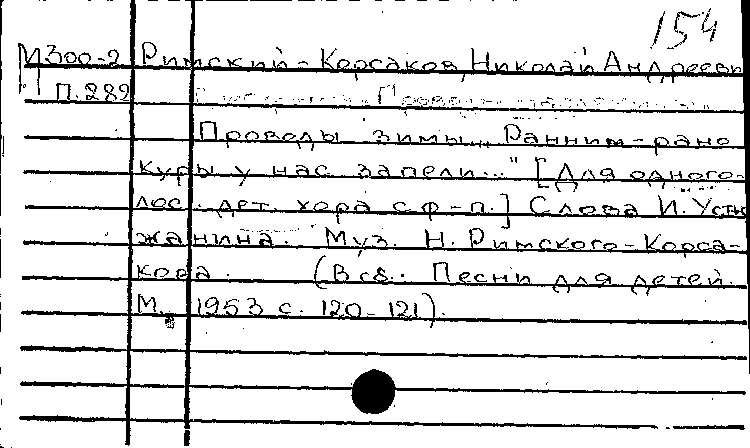 154
М300-2 Римский-Корсаков, Николай Андреевич
П.282
Проводы зимы „Ранним-рано
куры у нас запели..." [Для одного-
лос. дет. хора с ф-п.] Слова И. Усть-
жанина. Муз. Н. Римского-Корса-
кова. (В сб.: Песни для детей.
М., 1953 с. 120-121).